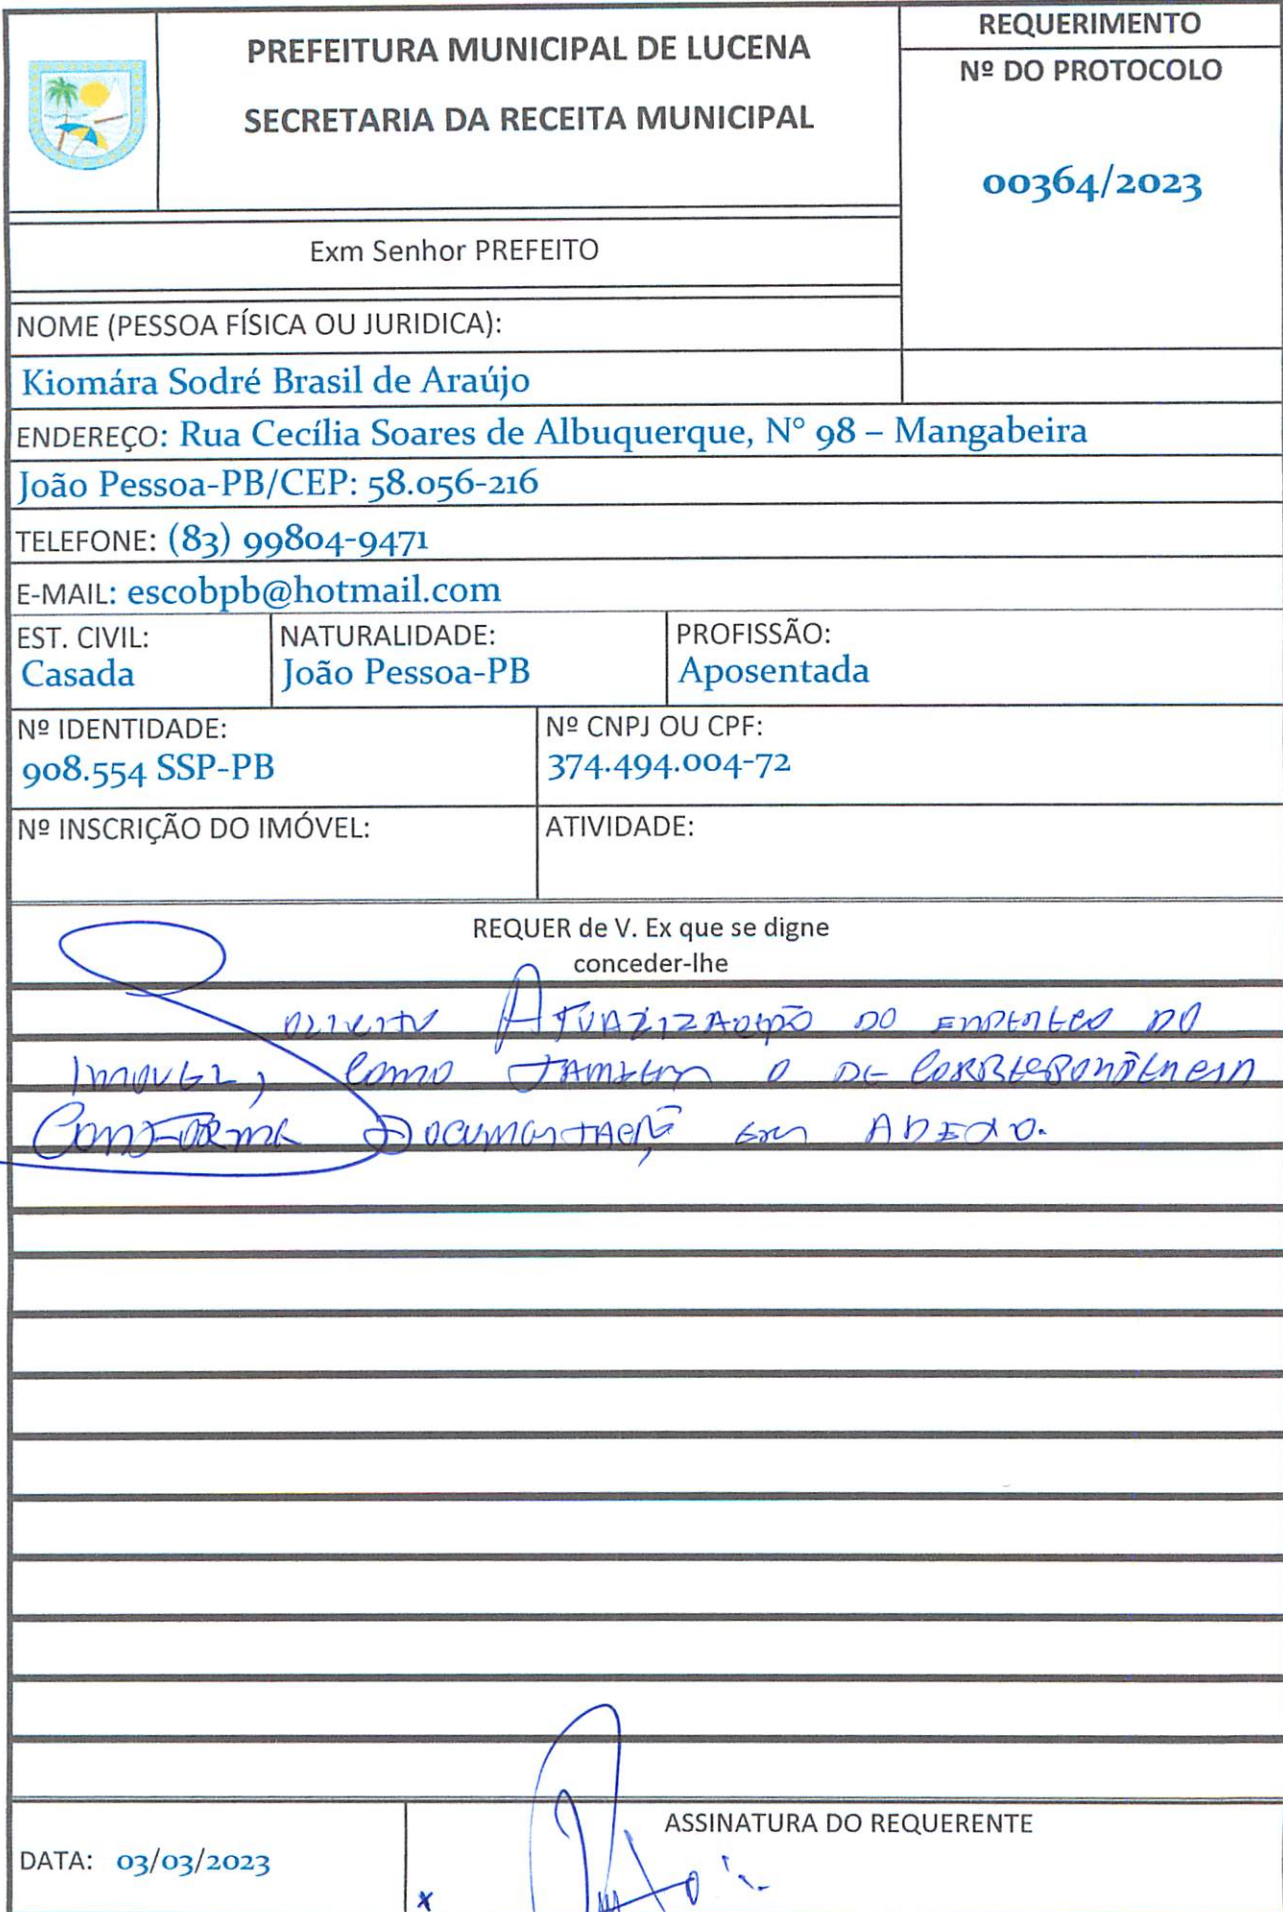 PREFEITURA MUNICIPAL DE LUCENA
SECRETARIA DA RECEITA MUNICIPAL
REQUERIMENTO
Nº DO PROTOCOLO
00364/2023
Exm Senhor PREFEITO
NOME (PESSOA FÍSICA OU JURIDICA):
Kiomára Sodré Brasil de Araújo
ENDEREÇO: Rua Cecília Soares de Albuquerque, N° 98 – Mangabeira
João Pessoa-PB/CEP: 58.056-216
TELEFONE: (83) 99804-9471
E-MAIL: escobpb@hotmail.com
EST. CIVIL:
Casada
NATURALIDADE:
João Pessoa-PB
PROFISSÃO:
Aposentada
Nº IDENTIDADE:
908.554 SSP-PB
Nº CNPJ OU CPF:
374.494.004-72
Nº INSCRIÇÃO DO IMÓVEL:
ATIVIDADE:
REQUER de V. Ex que se digne
conceder-lhe
Solicito Atualização do endereço do
imovel, como também o de correspondência
Conforme Documentação em Anexo.
ASSINATURA DO REQUERENTE
DATA: 03/03/2023
x